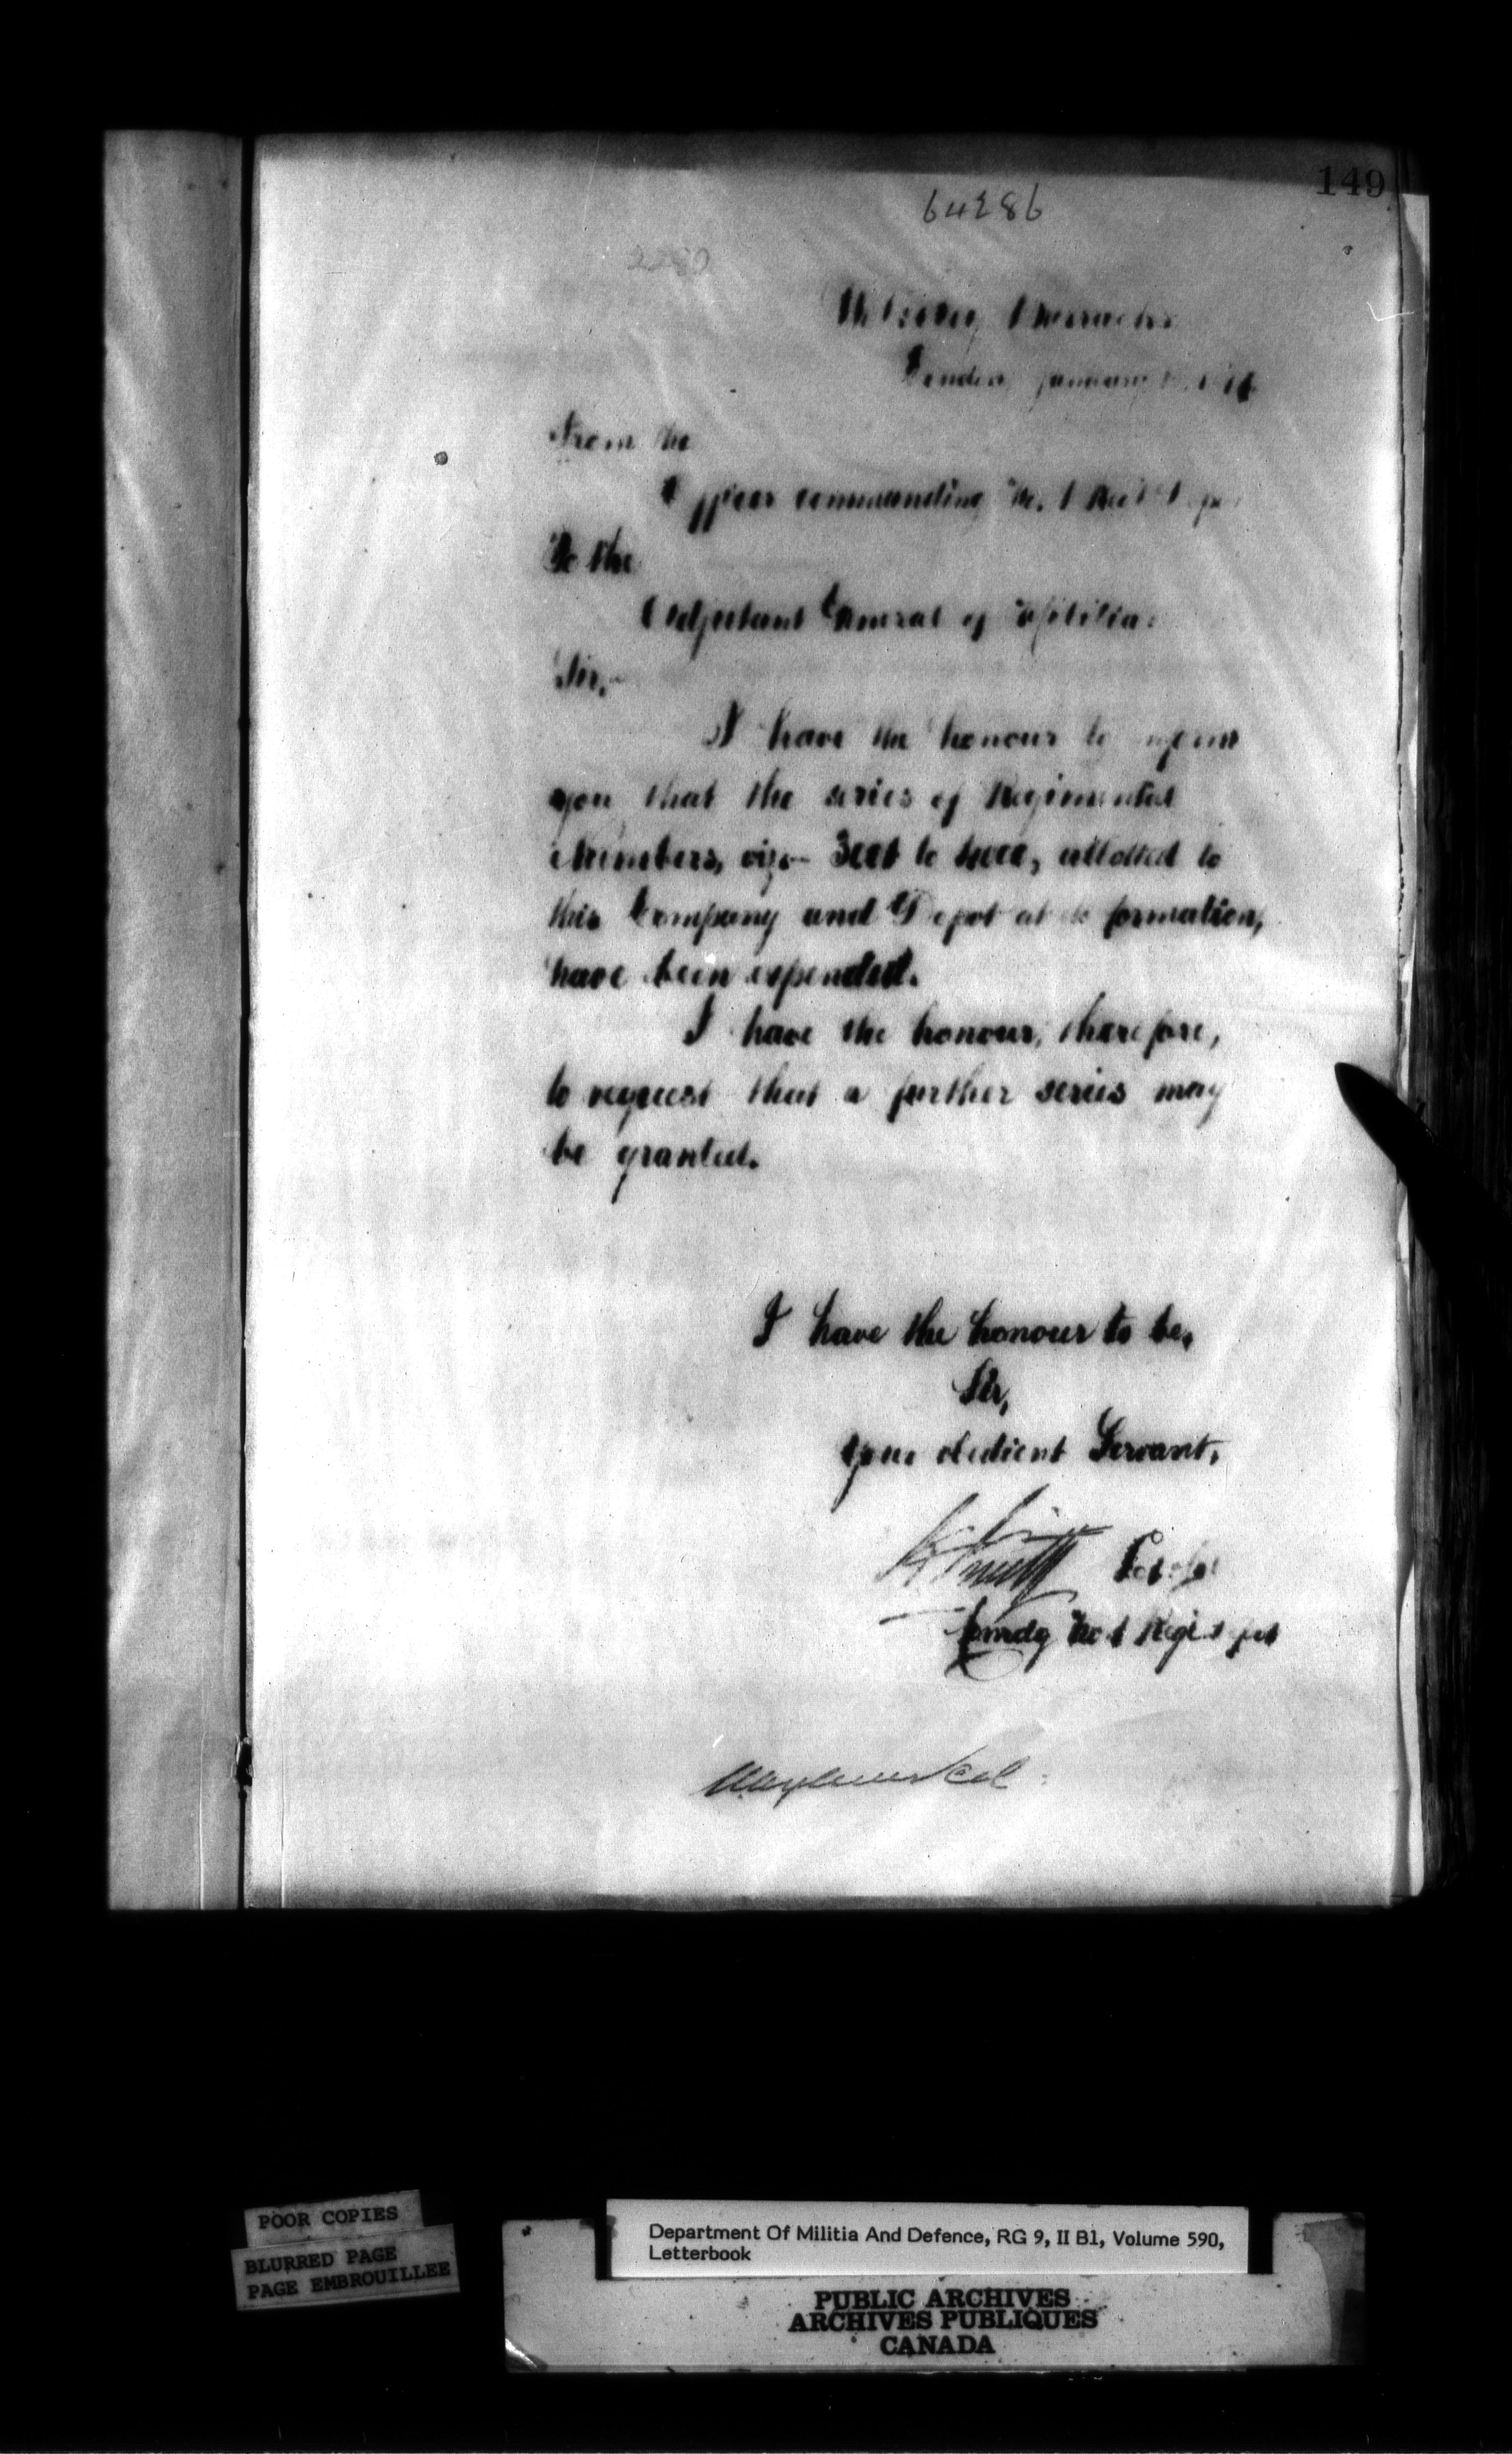 149
64286
2280
Wolseley Barracks
London January
From the
Officer commanding No. 1 Regt Depot
To the
Adjutant General of Militia.
Sir,-
I have the honour to inform
you that the series of Regimental
Numbers, viz:- 3001 to 4000, allotted to
this Company and Depot at its formation,
have been expended.
I have the honour, therefore,
to request that a further series may
be granted.
I have the honour to be,
Sir,
Your obedient Servant,
Comdg No 1 Regt Depot
Col
POOR COPIES
BLURRED PAGE
PAGE EMBROUILLEE
Department Of Militia And Defence, RG 9, II B1, Volume 590,
Letterbook
PUBLIC ARCHIVES
ARCHIVES PUBLIQUES
CANADA